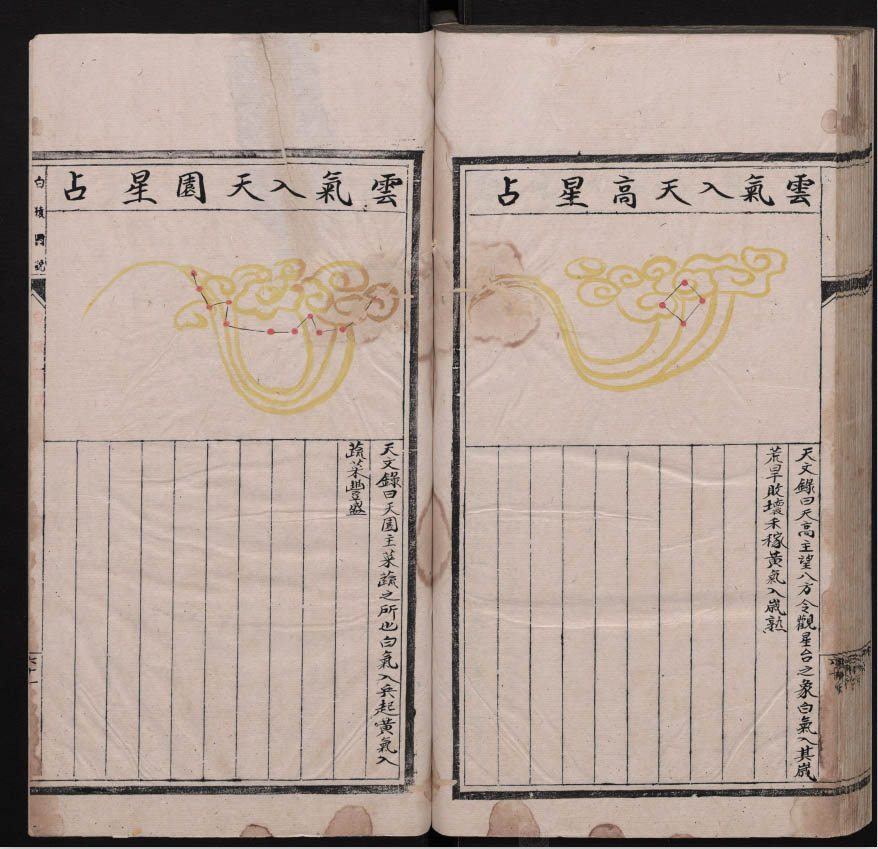 雲氣入天高星占
天文錄曰天高主望八方令觀星台之象白氣入其歲
荒旱敗壞禾稼黃氣入歲熟
雲氣入天園星占
天文錄曰天園主菜蔬之所也白氣入兵起黃氣入
蔬菜豐盛
白猿圖說